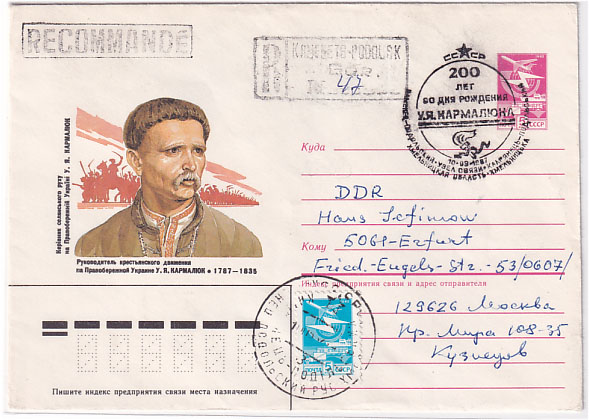 RECOMMANDÉ
KAMENETS-PODOLSK
R
№ 47
СССР
200
ЛЕТ
СО ДНЯ РОЖДЕНИЯ
У.Я. КАРМАЛЮКА
10-03-1987
ХМЕЛЬНИЦКАЯ ОБЛАСТЬ
ПОЧТА
СССР
Керівник селянського руху
на Правобережній Україні У. Я. КАРМАЛЮК
Руководитель крестьянского движения
на Правобережной Украине У. Я. КАРМАЛЮК • 1787–1835
Куда
DDR
Hans
Кому
5061-Erfurt
Fried.-Engels-Str.-53/0607/
Индекс предприятия связи и адрес отправителя
129626 Москва
Пр. Мира 108-35
Кузнецов
ПОЧТА 5К СССР
Пишите индекс предприятия связи места назначения